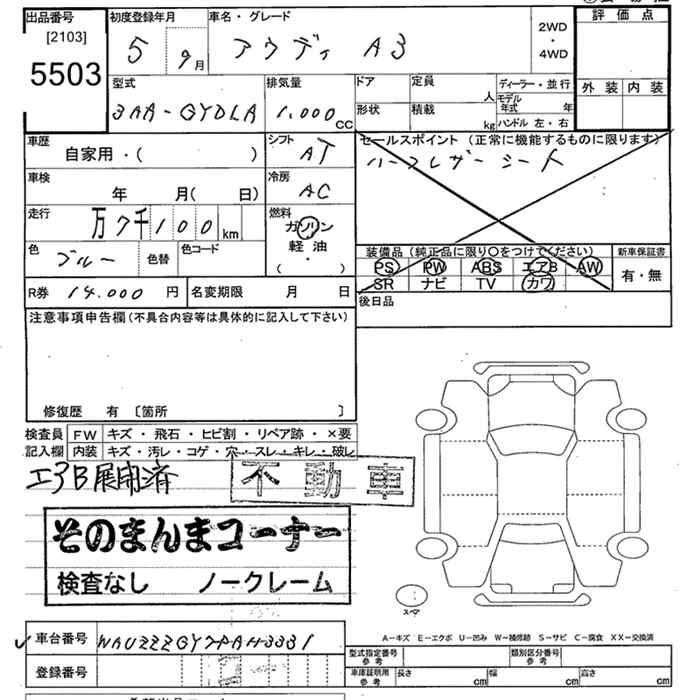 出品番号 初度登録年月 車名・グレード 評価点
[2103] 5 9月 アウディ A3 2WD・4WD
5503
型式 排気量 ドア 定員 人 ディーラー・並行 外装 内装
3AA-GYDLA 1.000cc 形状 積載 kg モデル年式 年
ハンドル 左・右
車歴 自家用・( ) シフト AT セールスポイント (正常に機能するものに限ります)
ハーフレザーシート
車検 年 月( 日) 冷房 AC
走行 万7千100km 燃料 ガソリン
軽油
( ・ )
色 ブルー 色替 色コード 装備品 (純正品に限り〇をつけてください) 新車保証書
PS PW ABS エアB AW 有・無
SR ナビ TV カワ
R券 14.000円 名変期限 月 日 後日品
注意事項申告欄(不具合内容等は具体的に記入して下さい)
修復歴 有 〔箇所 〕
検査員 FW キズ・飛石・ヒビ割・リペア跡・×要
記入欄 内装 キズ・汚レ・コゲ・穴・スレ・キレ・破レ
エアB展開済 不動車
そのまんまコーナー
検査なし ノークレーム
スペア
A-キズ E-エクボ U-凹み W-補修跡 S-サビ C-腐食 XX-交換済
車台番号 型式指定番号 参考 類別区分番号 参考
登録番号 車庫証明用 参考 長さ cm 幅 cm 高さ cm